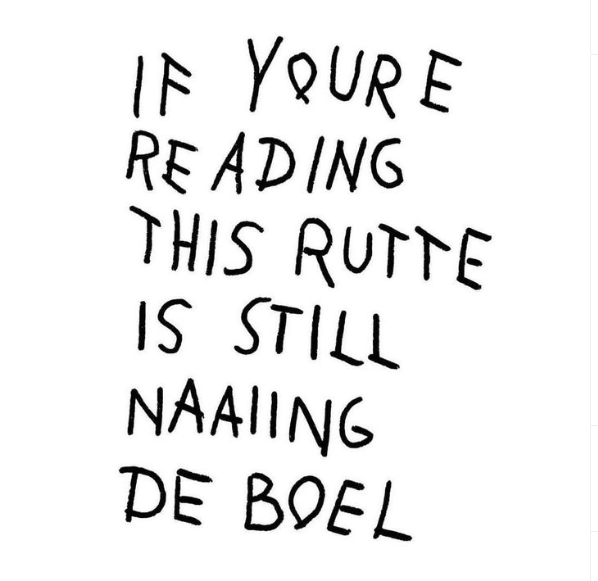 IF YOURE
READING
THIS RUTTE
IS STILL
NAAIING
DE BOEL